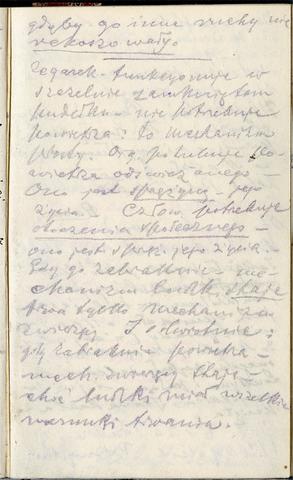 gdyby go inne ruchy nie
rekoszowały.
Zegarek funkcjonuje w
szczelnie zamkniętem
pudełku – nie potrzebuje
powietrza: to mechanizm
prosty. Org. potrzebuje po-
wietrza odświeżanego –
Ono jest sprężyną – jego
życia. – Człow. potrzebuje
otoczenia społecznego –
ono jest spręż. jego życia.
Gdy go zabraknie – me-
chanizm ludzk. staje
trwa tylko mechanizm
zwierzęcy I odwrotnie:
gdy zabraknie powietrza –
mech. zwierzęcy staje –
choć ludzki miał wszelkie
warunki trwania.